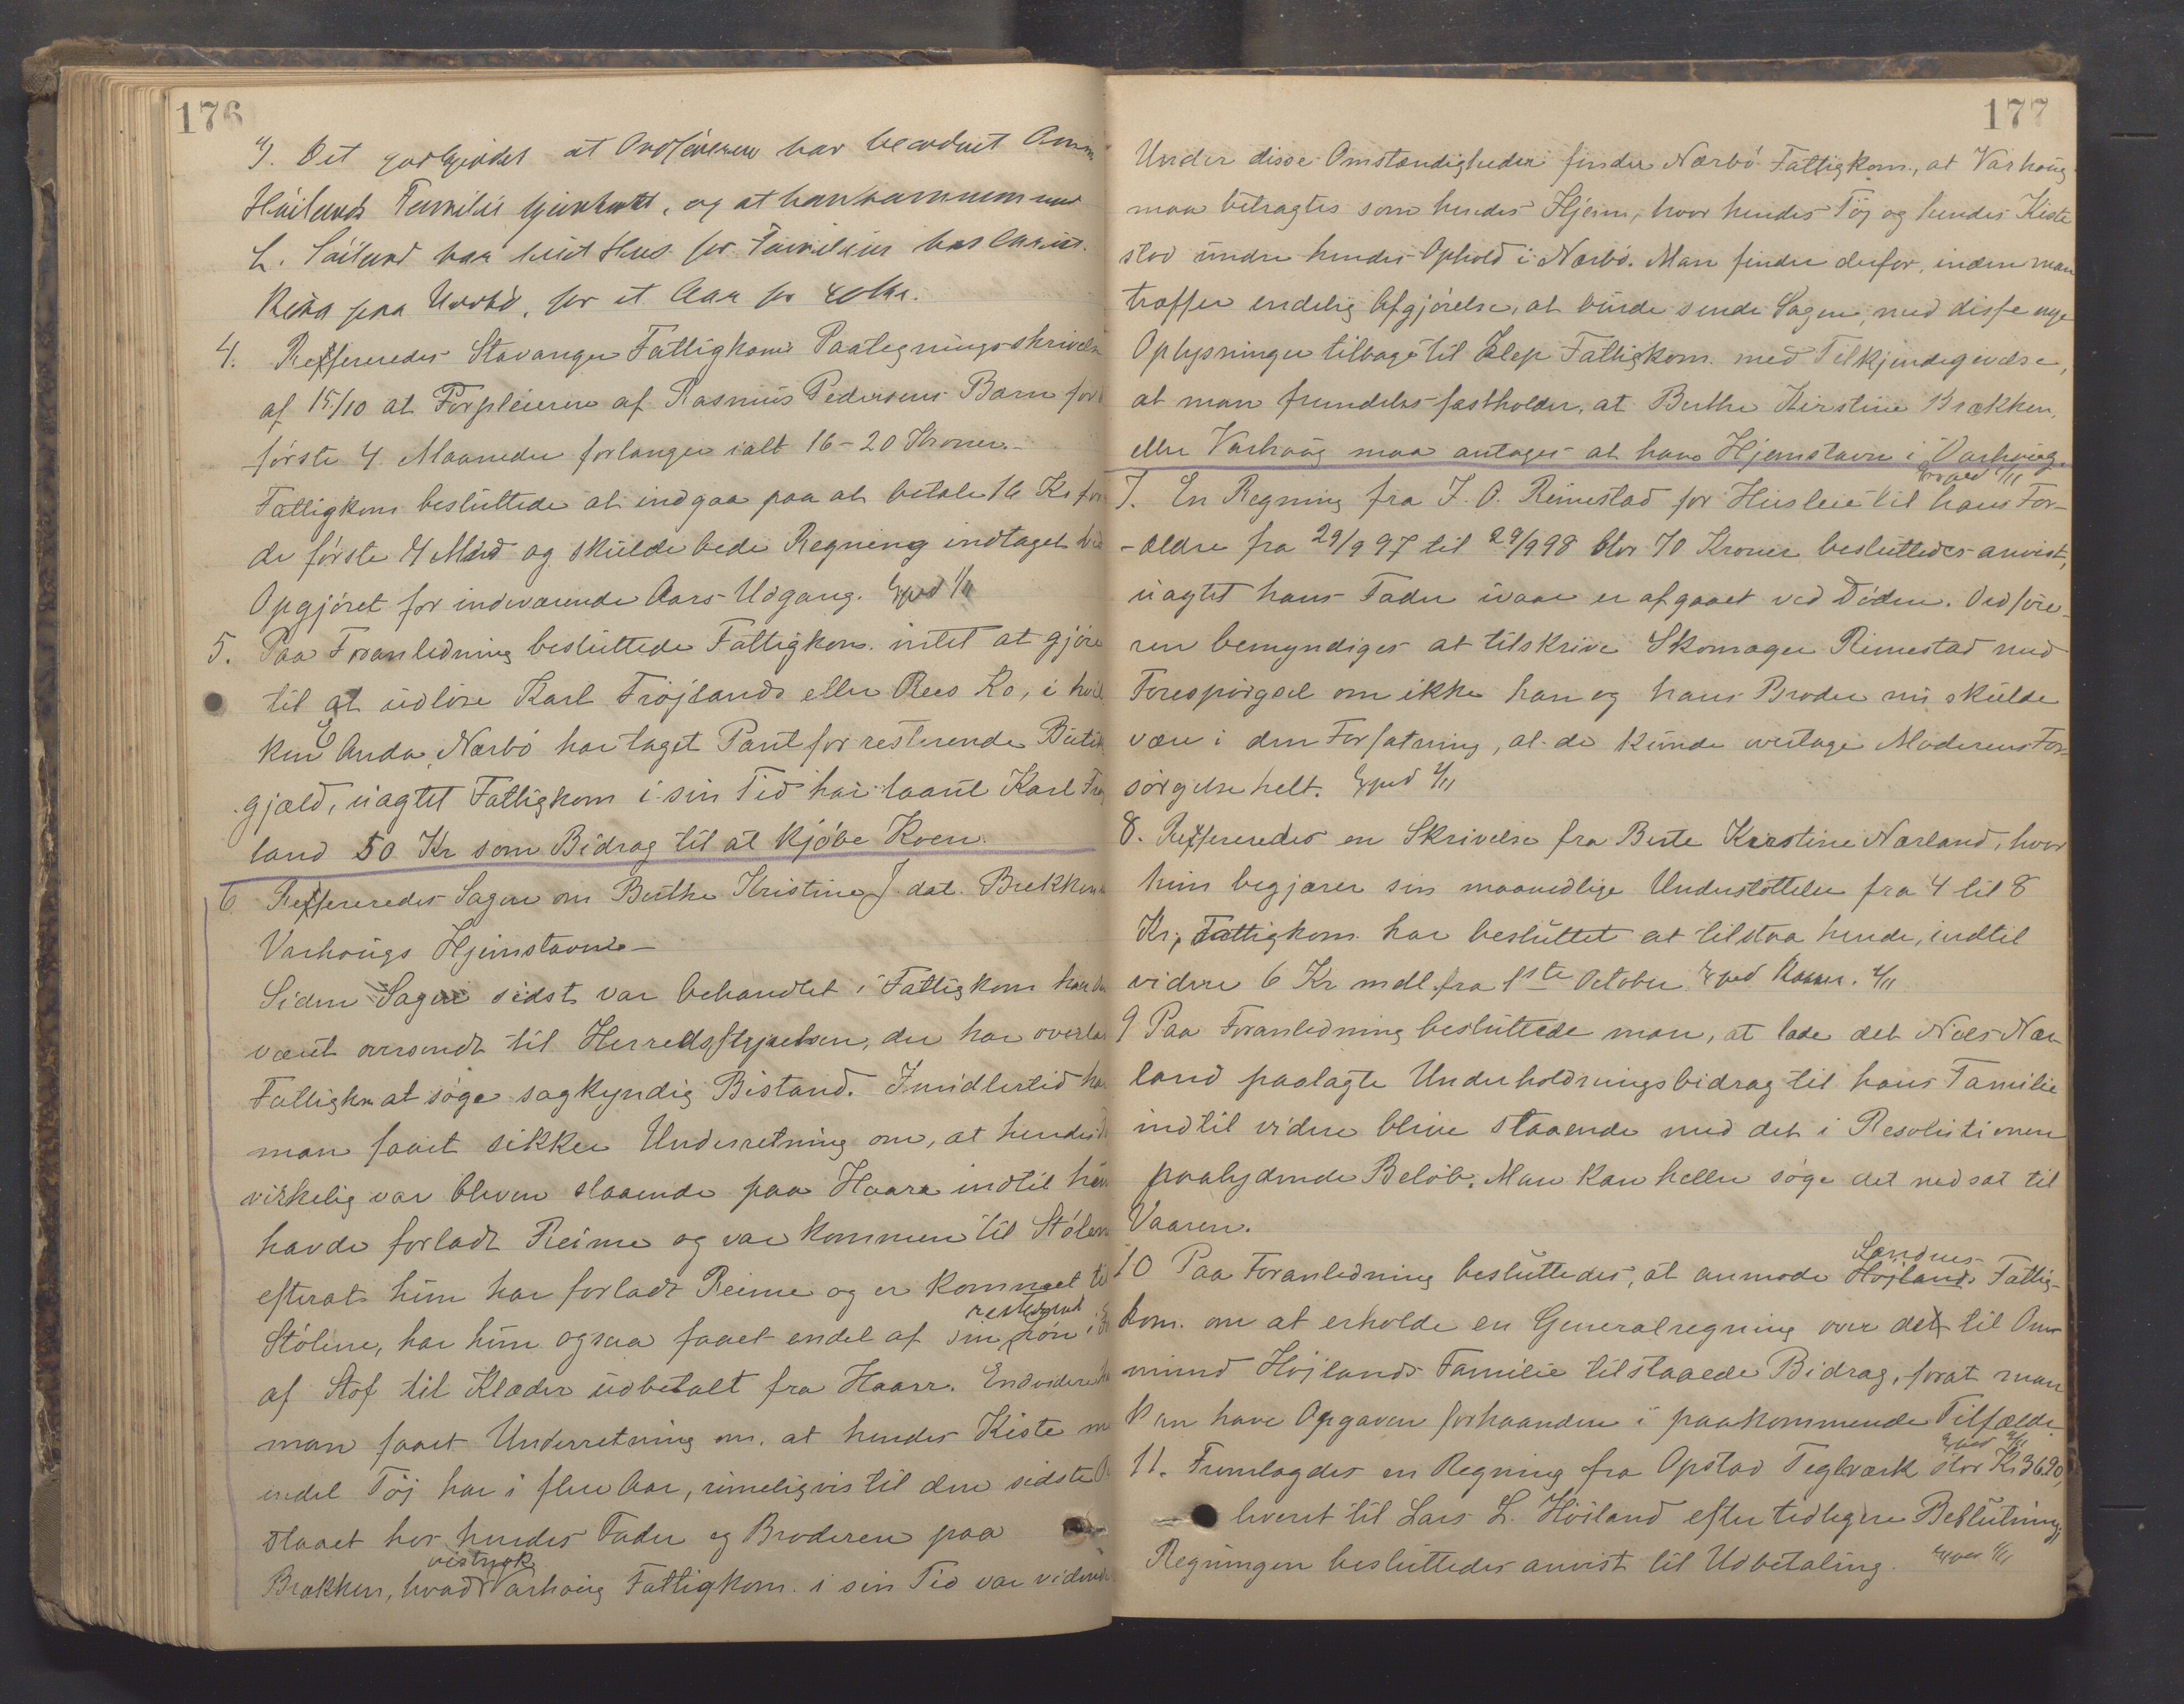 176
3. Det godkjendes at Ordføreren har beordret Amm
Høilands Familie hjembragt, og at han sammen med
L. Høiland har leiet Hus for Familien hos
paa Nærbø, for et Aar for 40 Kr.
4. Reffereredes Stavanger Fattigkoms Paategningsskrivelse
af 15/10 at Forpleieren af Rasmus Pedersens Barn for
første 4 Maaneder forlanger ialt 16-20 Kroner.-
Fattigkom besluttede at indgaa paa at betale 16 Kr for
de første 4 Mnd og skulde bede Regning indtaget ved
Opgjøret for indeværende Aars Udgang. Exped 1/11
5. Paa Foranledning besluttede Fattigkom. intet at gjøre
til at udløse Karl Trøjlands eller Rees Ko, i hvil
ken E Anda, Nærbø har taget Pant for resterende Butik
gjæld, uagtet Fattigkom i sin Tid har laant Karl Trøj
land 50 Kr som Bidrag til at kjøbe Koen.
6 Reffereredes Sagen om Berthe Kristine J. dat. Brekken
Varhougs Hjemstavn -
Siden Sagen sidst var behandlet i Fattigkom har den
været oversendt til Herredsstyrelsen, der har overladt
Fattigkm at søge sagkyndig Bistand. Imidlertid har
man faaet sikker Underretning om, at hendes
virkelig var bleven staaende paa Haarr indtil hun
havde forladt Reime og var kommen til Stølen
efterat hun har forladt Reime og er kommet til
Stølene, har hun ogsaa faaet endel af sin resterende Løn i
af Stof til Klæder udbetalt fra Haarr. Endvidere har
man faaet Underretning om, at hendes Kiste m
endel Tøj har i flere Aar, rimeligvis til den sidste
staaet hos hendes Fader og Broderen paa
Brækken, hvad vistnok Varhoug Fattigkom. i sin Tid var vidende
177
Under disse Omstændigheder finder Nærbø Fattigkom., at Varhoug
maa betragtes som hendes Hjem, hvor hendes Tøj og hendes Kiste
stod under hendes Ophold i Nærbø. Man finder derfor, inden man
træffer endelig Afgjørelse, at burde sende Sagen, med disse nye
Oplysninger tilbage til Klep Fattigkom. med Tilkjendegivelse,
at man fremdeles fastholder, at Berthe Kirstine Brækken,
eller Varhoug maa antages at have Hjemstavn i Varhoug.
Exped 1/11
7. En Regning fra J. O. Reimestad for Husleie til hans For-
-ældre fra 29/9 97 til 29/9 98 stor 70 Kroner besluttedes anvist,
uagtet hans Fader ivaar er afgaaet ved Døden. Ordføre-
ren bemyndiges at tilskrive Skomager Rimestad med
Forespørgsel om ikke han og hans Broder nu skulde
være i den Forfatning, at de kunde overtage Moderens For-
sørgelse helt. Exped 1/11
8. Reffereredes en Skrivelse fra Berte Kirstine Nærland, hvor
hun begjærer sin maanedlige Understøttelse fra 4 til 8
Kr, Fattigkom. har besluttet at tilstaa hende, indtil
videre 6 Kr mdl. fra 1ste October. Exped Kasser. 1/11
9 Paa Foranledning besluttede man, at lade det Niels Nær-
land paalagte Underholdningsbidrag til hans Familie
indtil videre blive staaende med det i Resolutionen
paalydende Beløb. Man kan heller søge det nedsat til
Vaaren.
10 Paa Foranledning besluttedes, at anmode Sandnes Højlands Fattig-
kom. om at erholde en Generalregning over det til Om-
mund Højlands Familie tilstaaede Bidrag, forat man
kan have Opgaven forhaanden i paakommende Tilfælde.
Exped 1/11
11. Fremlagdes en Regning fra Opstad Teglværk stor Kr 36.20,
leveret til Lars L. Høiland efter tidligere Beslutning,
Regningen besluttedes anvist til Udbetaling. Exped 1/11